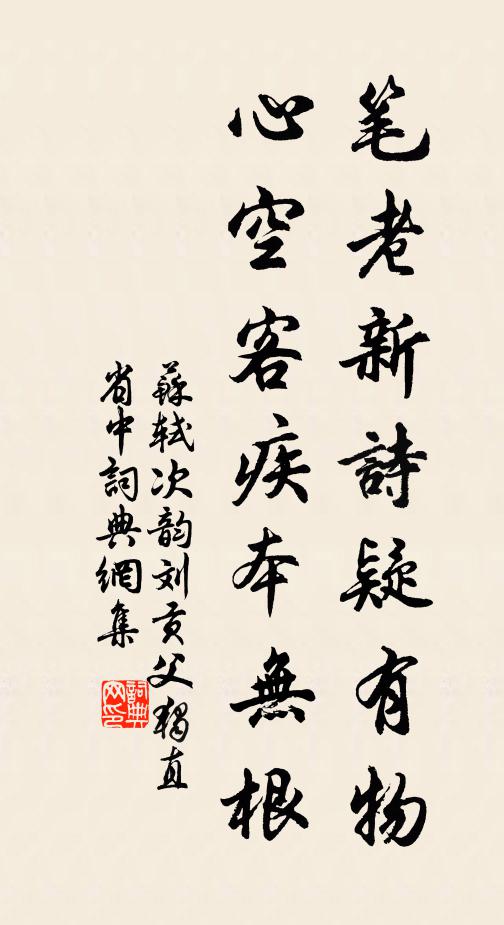 笔老新詩疑有物
心空客疾本無根
蘇轼次韵刘贡父独直
省中詞典網集
詞典网印